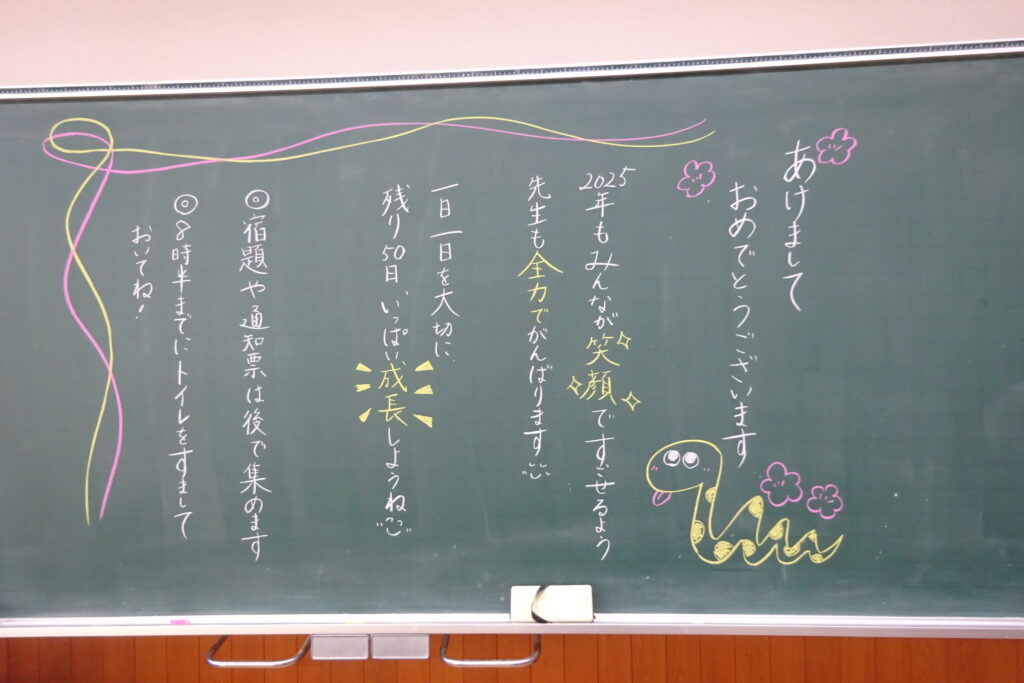 あけまして
おめでとうございます
2025年もみんなが笑顔ですごせるよう
先生も全力でがんばります
一日一日を大切に
残り50日、いっぱい成長しようね
◎宿題や通知票は後で集めます
◎8時半までにトイレをすまして
おいてね！